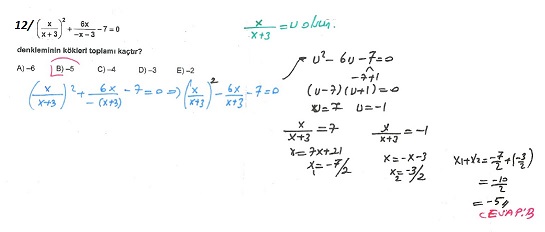 12/ (x/(x+3))² + 6x/(-x-3) - 7 = 0
denkleminin kökleri toplamı kaçtır?
A) -6 B) -5 C) -4 D) -3 E) -2
(x/(x+3))² + 6x/-(x+3) - 7 = 0 => (x/(x+3))² - 6x/(x+3) - 7 = 0
x/(x+3) = u olsun.
u² - 6u - 7 = 0
-7 +1
(u-7)(u+1) = 0
u = 7 u = -1
x/(x+3) = 7 x/(x+3) = -1
x = 7x+21 x = -x-3
x₁ = -7/2 x₂ = -3/2
x₁+x₂ = -7/2 + (-3/2)
= -10/2
= -5//
CEVAP: B